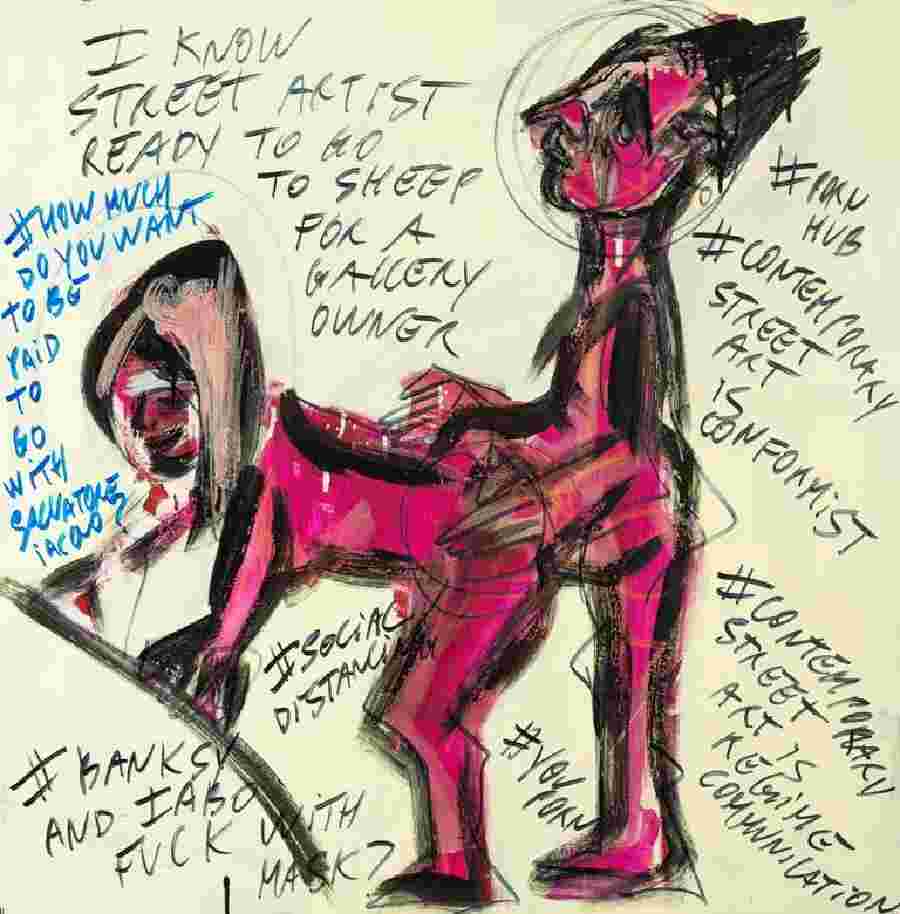 I KNOW
STREET ARTIST
READY TO GO
TO SHEEP
FOR A
GALLERY
OWNER
#HOW MUCH
DO YOU WANT
TO BE
PAID
TO
GO
WITH
SALVATORE
iACONO?
#PORN
HUB
#CONTEMPORARY
STREET
ART
IS
CONFORMIST
#SOCIAL
DISTANCING
#CONTEMPORARY
STREET
ART IS
REGIME
COMMUNICATION
#YOU
PORN
#BANKSY
AND IABO
FUCK WITH
MASK?